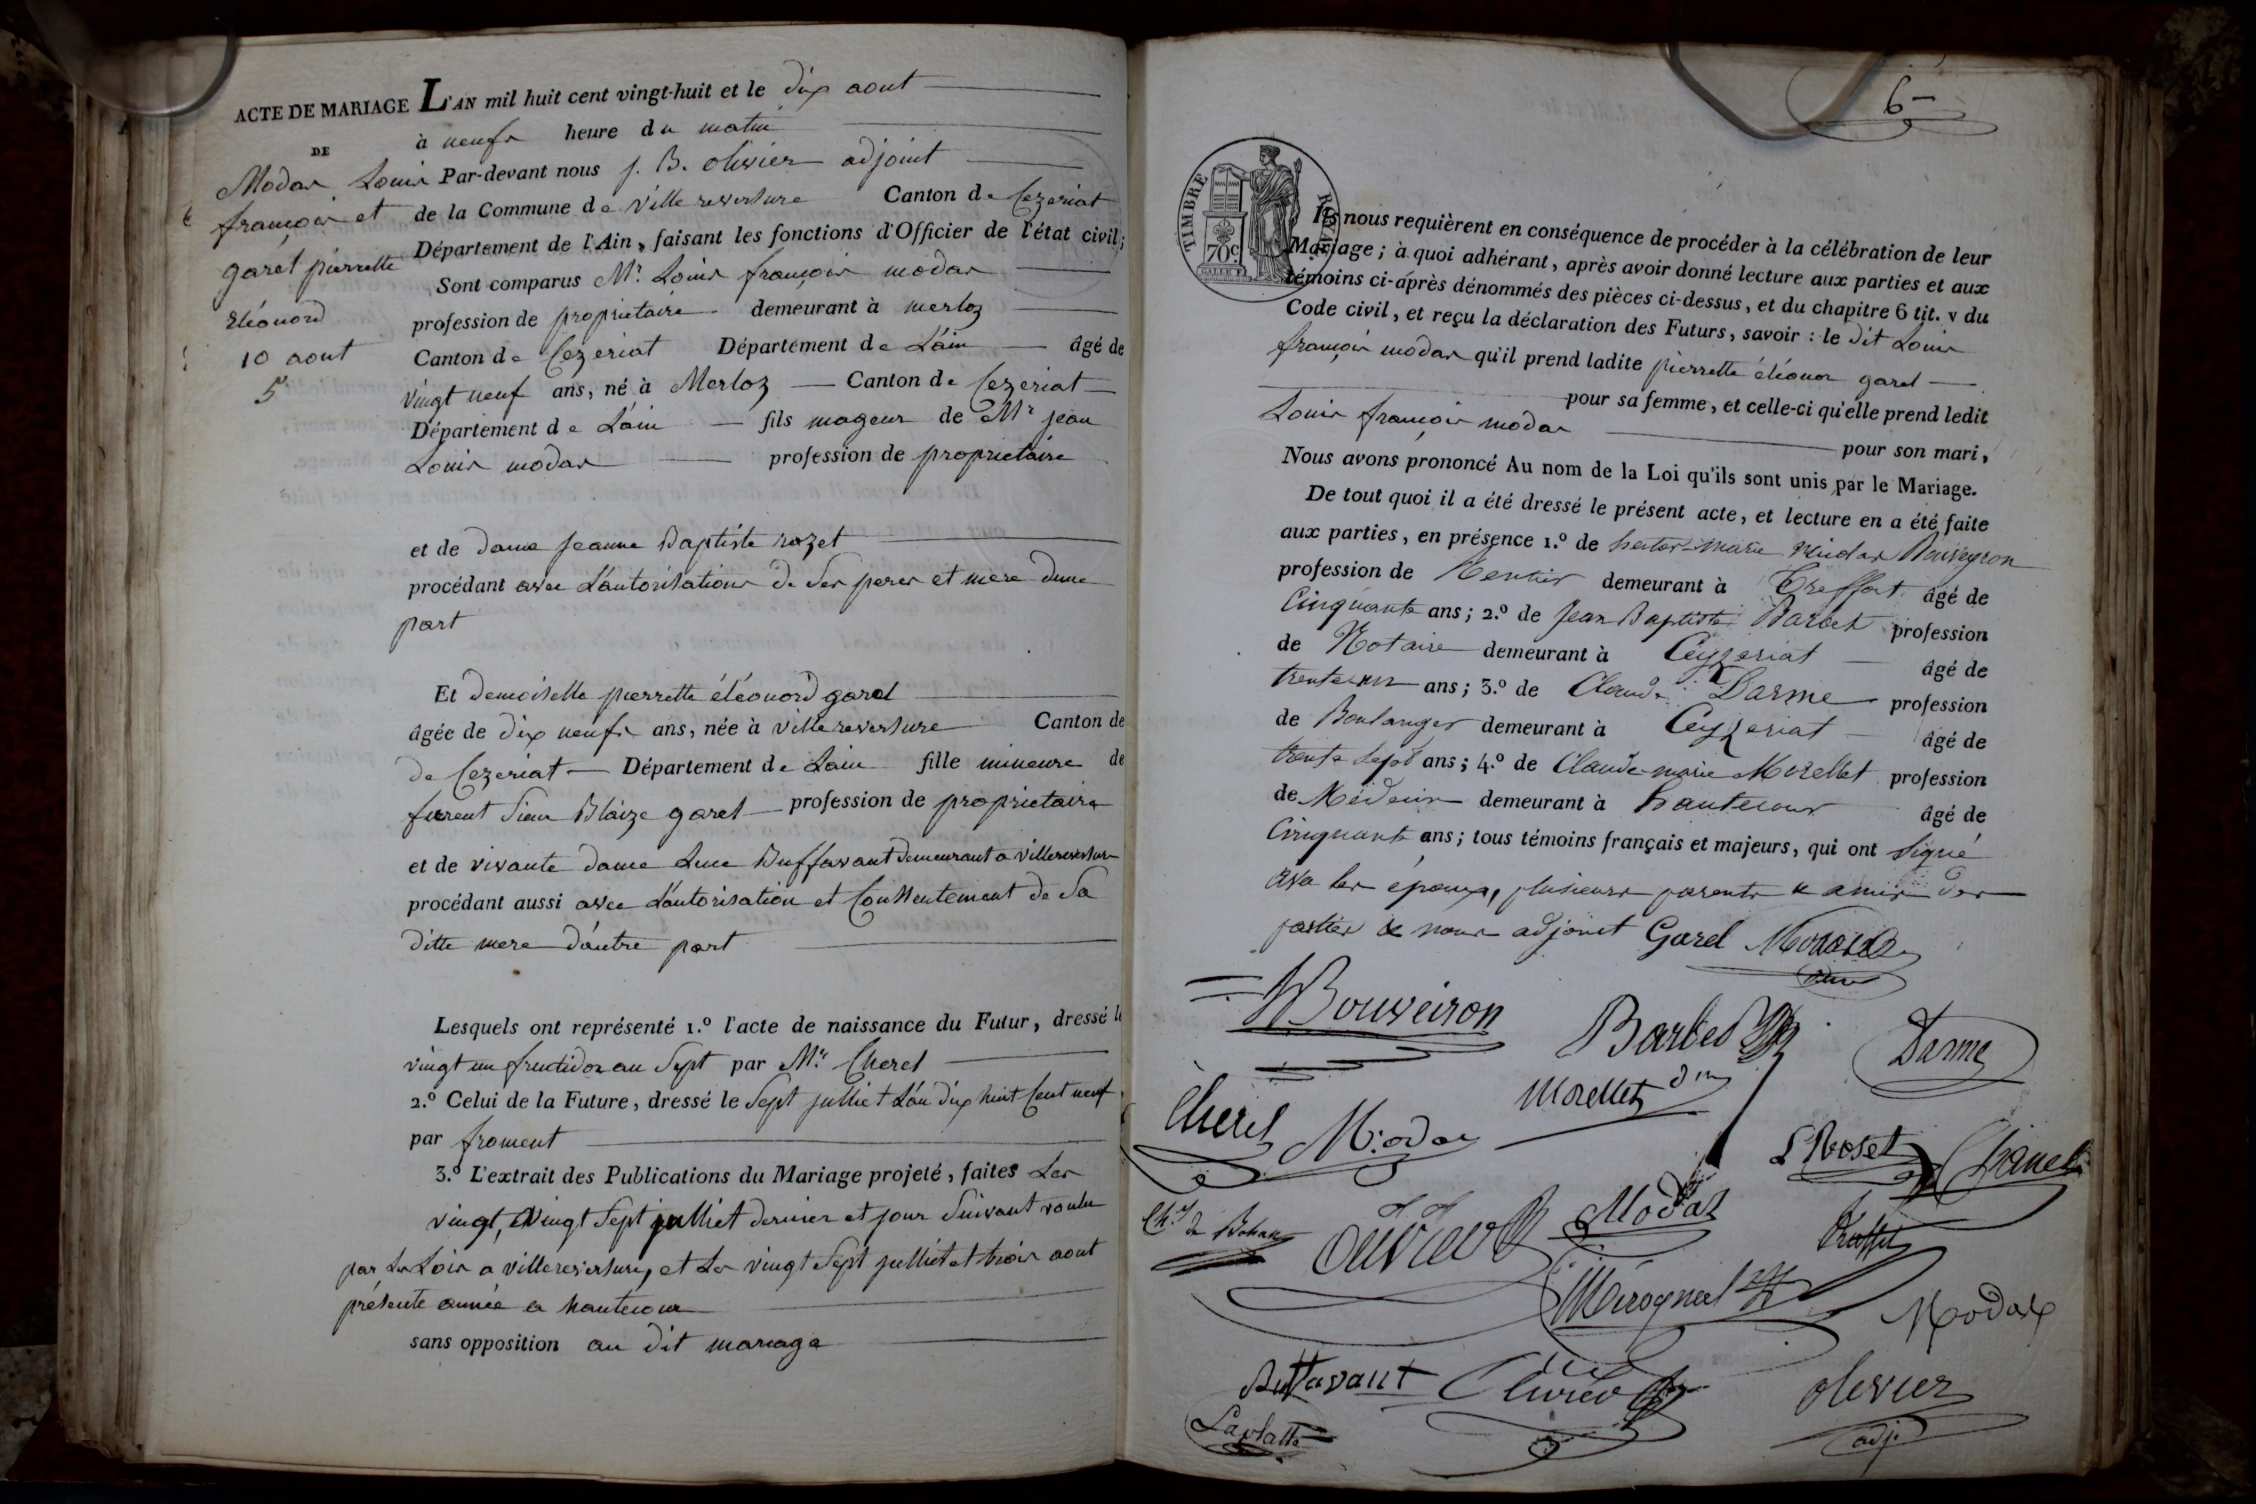 ACTE DE MARIAGE
DE
Modas Louis
françois et
garel pierrette
Eléonord
10 aout
5
L'AN mil huit cent vingt-huit et le dix aout
à neufs heure du matin
Par-devant nous j. B. olivier adjoint
de la Commune de Villereversure Canton de Cezeriat
Département de l'Ain, faisant les fonctions d'Officier de l'état civil;
Sont comparus Mr. Louis françois modas
profession de proprietaire demeurant à merloz
Canton de Cezeriat Département de L'ain âgé de
vingt neuf ans, né à Merloz Canton de Cezeriat
Département de L'ain fils mageur de Mr jean
Louis modas profession de proprietaire
et de dame jeanne Baptiste rozet
procédant avec L'autorisation de ses peres et mere dune
part
Et demoiselle pierrette éléonord garel
âgée de dix neufs ans, née à villereversure Canton de
de Cezeriat Département de Lain fille mineure de
furent sieur Blaize garel profession de proprietaire
et de vivante dame Luce Buffavant demeurant a villereversure
procédant aussi avec L'autorisation et Consentement de Sa
ditte mere d'autre part
Lesquels ont représenté 1.º l'acte de naissance du Futur, dressé le
vingt un fructidor an Sept par Mr. Cherel
2.º Celui de la Future, dressé le Sept julliet L'an dix huit Cent neuf
par froment
3.º L'extrait des Publications du Mariage projeté, faites Les
vingt, vingt Sept julliet dernier et jour Suivant voulu
par La Loix a villereversure, et Les vingt Sept julliet et trois aout
présente année a hautecour
sans opposition au dit mariage
6
TIMBRE ROYAL
70c
Ils nous requièrent en conséquence de procéder à la célébration de leur
Mariage; à quoi adhérant, après avoir donné lecture aux parties et aux
témoins ci-après dénommés des pièces ci-dessus, et du chapitre 6 tit. v du
Code civil, et reçu la déclaration des Futurs, savoir : le dit Louis
françois modas qu'il prend ladite pierrette éléonor garel
pour sa femme, et celle-ci qu'elle prend ledit
Louis françois modas pour son mari,
Nous avons prononcé Au nom de la Loi qu'ils sont unis par le Mariage.
De tout quoi il a été dressé le présent acte, et lecture en a été faite
aux parties, en présence 1.º de hector marie nicolas Bouveyron
profession de Rentier demeurant à Treffort âgé de
Cinquante ans; 2.º de Jean Baptiste Barbet profession
de Notaire demeurant à Ceyzeriat âgé de
trente ans; 3.º de Claude Darme profession
de Boulanger demeurant à Ceyzeriat âgé de
trente sept ans; 4.º de Claude marie Morellet profession
de Médecin demeurant à hautecour âgé de
Cinquante ans; tous témoins français et majeurs, qui ont signé
avec les époux, plusieurs parents & amis des
parties & nous adjoint Garel Modas
Bouveiron
Barbet
Darme
Morellet
Cherel
Modas
L Roset
Chanel
Chr de Bohan
Olivier
Modas
Modas
Buffavant
Olivier
olivier
adj.
Laplatte